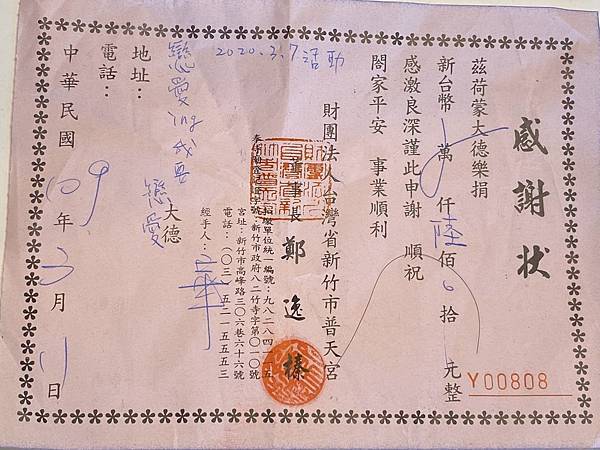 感謝狀
茲荷蒙大德樂捐
新台幣 萬 仟陸佰0拾 元整
感激良深謹此申謝 順祝
閤家平安 事業順利
財團法人台灣省新竹市普天宮
董事長 鄭逸榛
扣繳單位統一編號：九八二八四一 五
新竹市政府八二竹寺字第〇一〇號
宮址：新竹市高峰路三〇六巷六十六號
電話：（〇三）五二一五五五三
經手人：
2020.3.7.活動
戀愛ing 我要戀愛
大德
地址：
電話：
中華民國109年3月11日
Y00808